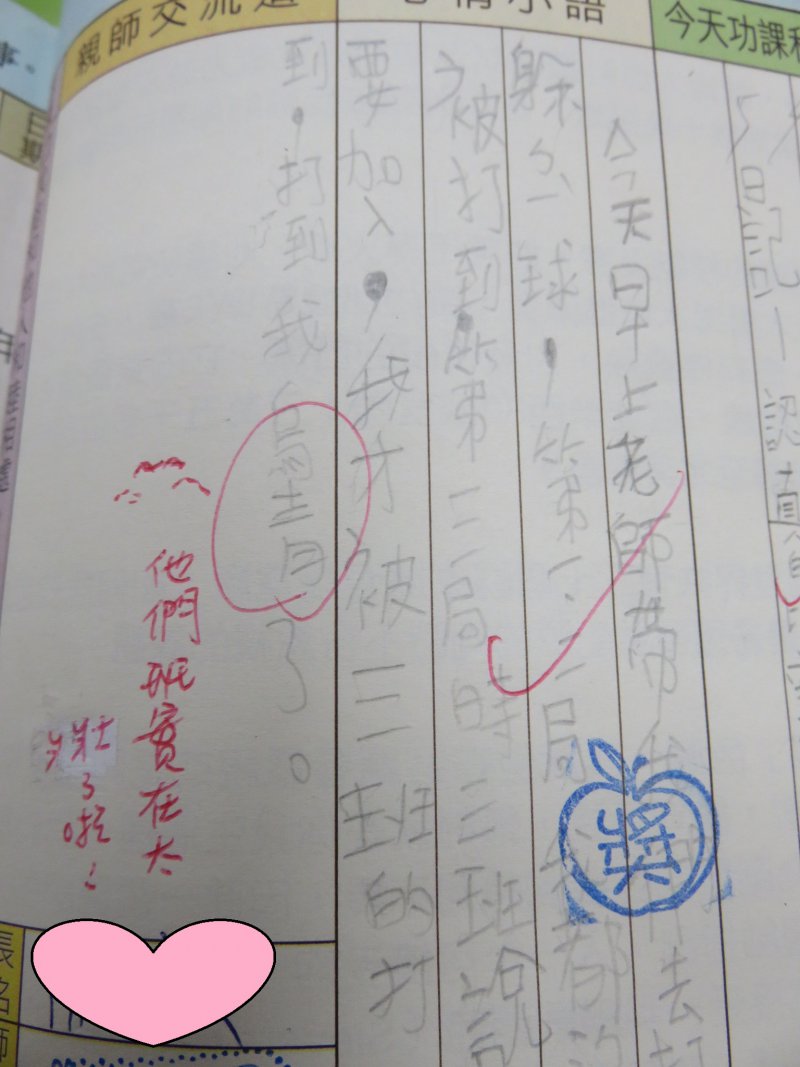 今天功課
日記一 認真
心情小語
今天早上老師帶我們去打
躲ㄅ球，第一、二局我都沒
被打到第二局時三班說
要加入，我才被三一班的打
到，打到我烏青了。
親師交流道
他們班實在太
壯了啦!
事。
日期